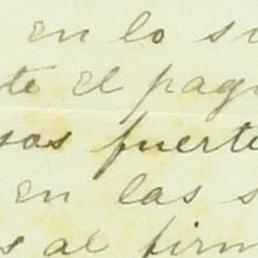 en lo su
te el paga
sos fuerte
en las s
s al firm